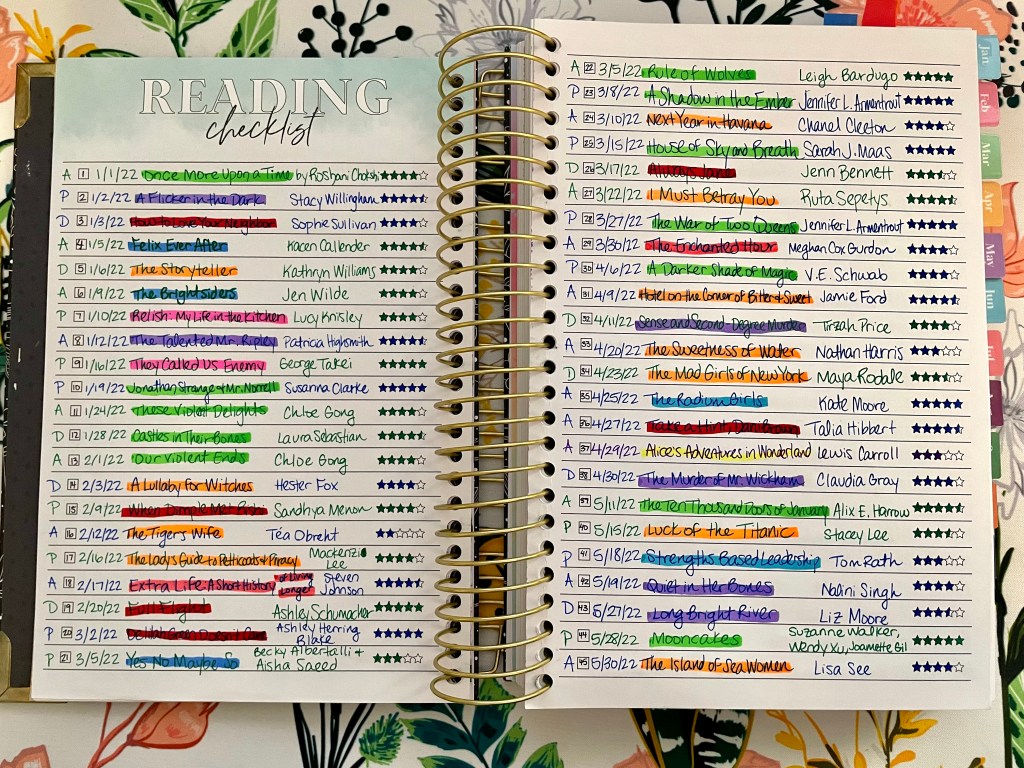 READING
checklist
A 1 1/1/22 Once More Upon a Time by Roshani Chokshi ★★★★☆
P 2 1/2/22 A Flicker in the Dark Stacy Willingham
D 3 1/3/22 How to Love Your Neighbor Sophie Sullivan
A 4 1/5/22 Felix Ever After Kacen Callender
D 5 1/6/22 The Storyteller Kathryn Williams ★★★★☆
A 6 1/9/22 The Brightsiders Jen Wilde ★★★★☆
P 7 1/10/22 Relish: My Life in the Kitchen Lucy Knisley ★★★★☆
A 8 1/12/22 The Talented Mr. Ripley Patricia Highsmith
P 9 1/16/22 They Called Us Enemy George Takei
P 10 1/19/22 Jonathan Strange & Mr. Norrell Susanna Clarke ★★★★★
A 11 1/24/22 These Violent Delights Chloe Gong ★★★★☆
D 12 1/28/22 Castles in Their Bones Laura Sebastian
A 13 2/1/22 Our Violent Ends Chloe Gong
D 14 2/3/22 A Lullaby for Witches Hester Fox ★★★★☆
P 15 2/9/22 When Dimple Met Rishi Sandhya Menon ★★★★☆
A 16 2/12/22 The Tiger's Wife Téa Obreht ★★☆☆☆
P 17 2/16/22 The Lady's Guide to Petticoats & Piracy Mackenzie Lee
A 18 2/17/22 Extra Life: A Short History of Living Longer Steven Johnson
D 19 2/20/22 Full Flight Ashley Schumacher ★★★★★
P 20 3/2/22 Delilah Green Doesn't Care Ashley Herring Blake ★★★★★
P 21 3/5/22 Yes No Maybe So Becky Albertalli & Aisha Saeed ★★★☆☆
A 22 3/5/22 Rule of Wolves Leigh Bardugo ★★★★★
P 23 3/8/22 A Shadow in the Ember Jennifer L. Armentrout ★★★★★
A 24 3/10/22 Next Year in Havana Chanel Cleeton ★★★★☆
P 25 3/15/22 House of Sky and Breath Sarah J. Maas ★★★★★
D 26 3/17/22 Always Jane Jenn Bennett
A 27 3/22/22 I Must Betray You Ruta Sepetys
P 28 3/27/22 The War of Two Queens Jennifer L. Armentrout ★★★★★
A 29 3/30/22 The Enchanted Hour Meghan Cox Gurdon
P 30 4/6/22 A Darker Shade of Magic V.E. Schwab ★★★★☆
A 31 4/9/22 Hotel on the Corner of Bitter & Sweet Jamie Ford
D 32 4/11/22 Sense and Second-Degree Murder Tirzah Price ★★★★☆
A 33 4/20/22 The Sweetness of Water Nathan Harris ★★★☆☆
D 34 4/23/22 The Mad Girls of New York Maya Rodale
A 35 4/25/22 The Radium Girls Kate Moore ★★★★★
A 36 4/27/22 Take a Hint, Dani Brown Talia Hibbert
A 37 4/29/22 Alice's Adventures in Wonderland Lewis Carroll ★★★☆☆
D 38 4/30/22 The Murder of Mr. Wickham Claudia Gray ★★★★☆
A 39 5/11/22 The Ten Thousand Doors of January Alix E. Harrow
P 40 5/15/22 Luck of the Titanic Stacey Lee
P 41 5/18/22 Strengths Based Leadership Tom Rath ★★★☆☆
A 42 5/19/22 Quiet in Her Bones Nalini Singh ★★★★☆
D 43 5/27/22 Long Bright River Liz Moore
P 44 5/28/22 Mooncakes Suzanne Walker, Wendy Xu, Joamette Gil ★★★★★
A 45 5/30/22 The Island of Sea Women Lisa See ★★★★☆
Jan
Feb
Mar
Apr
May
Jun
Jul